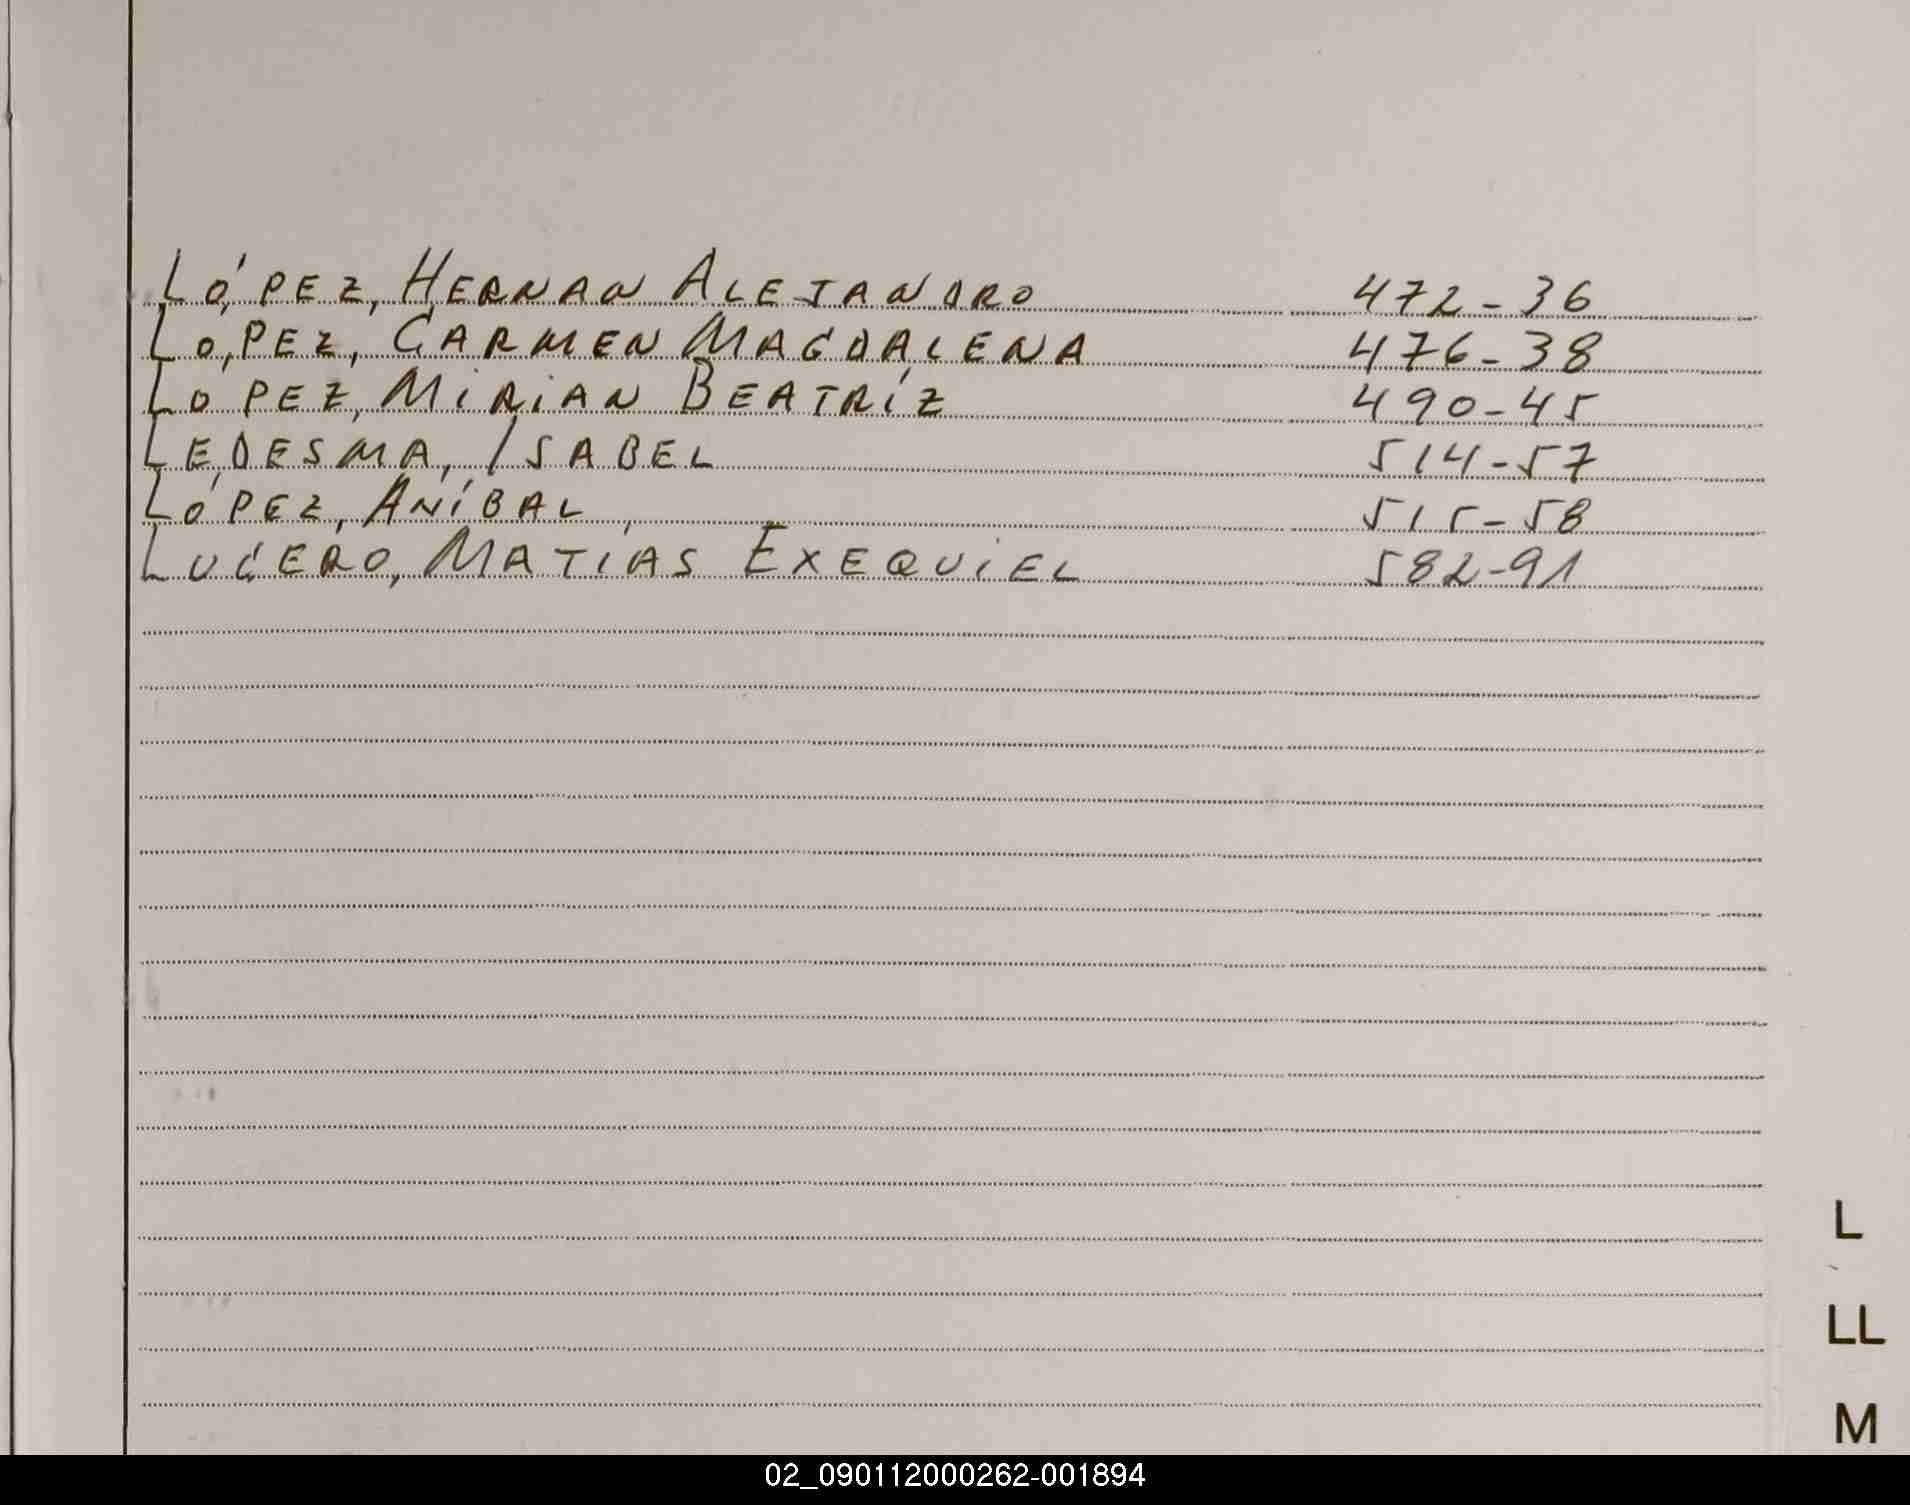 López, Hernan Alejandro 472-36
López, Carmen Magdalena 476-38
López, Mirian Beatríz 490-45
Ledesma, Isabel 514-57
López, Aníbal 515-58
Lucero, Matías Exequiel 582-91
L
LL
M
02_090112000262-001894